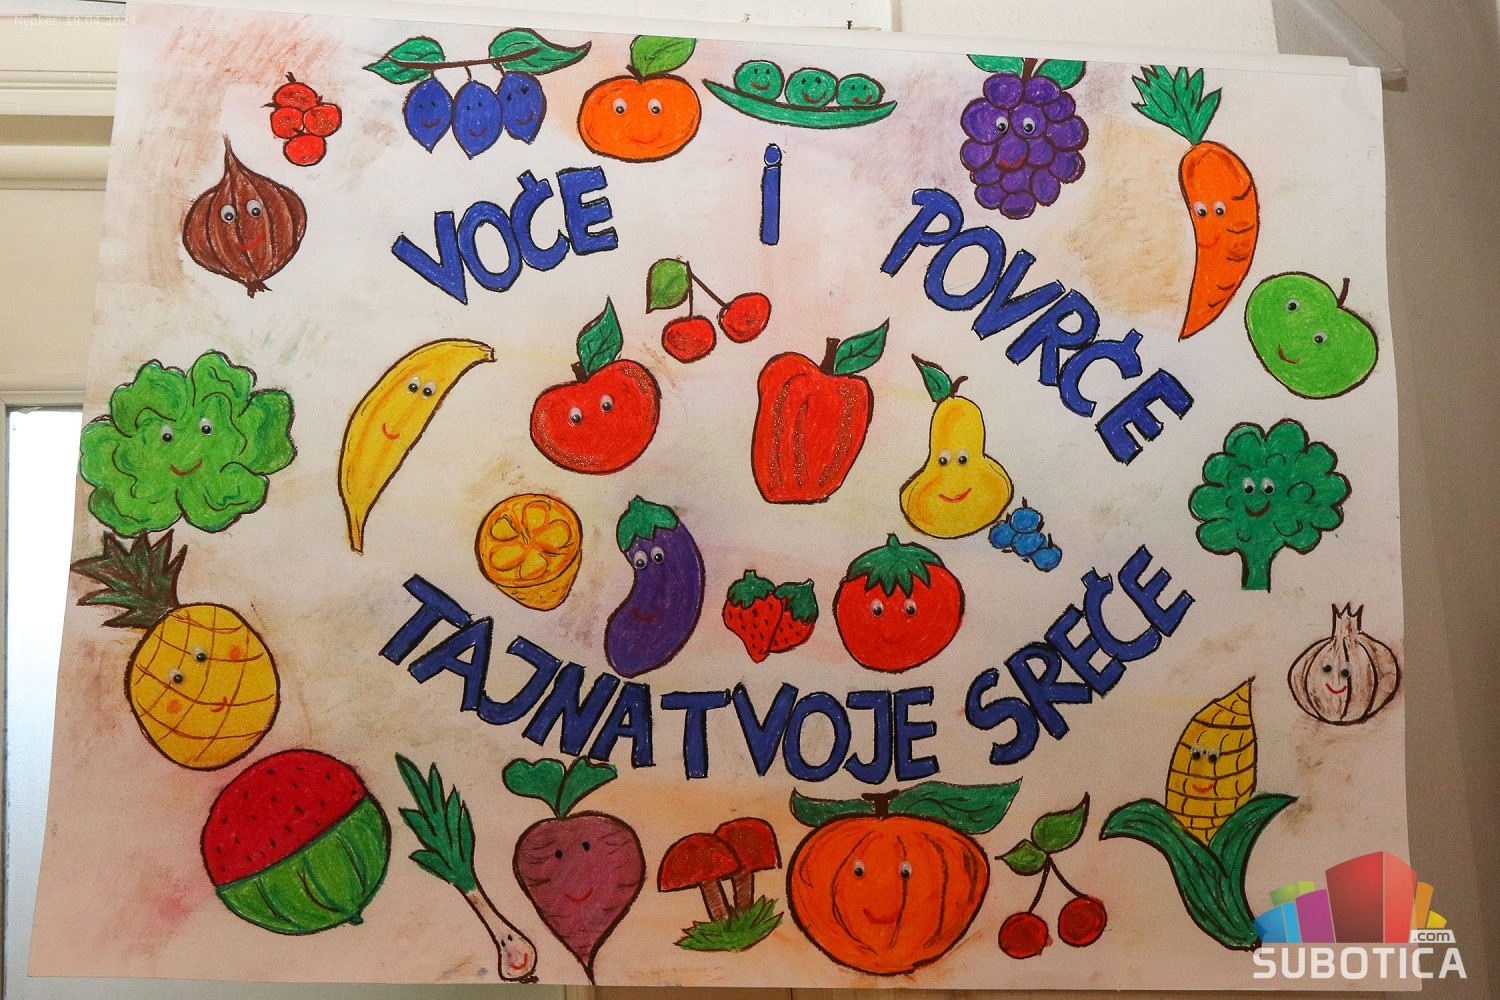 Nepker, 19.04.2024
VOĆE i POVRĆE
TAJNA TVOJE SREĆE
.com
SUBOTICA